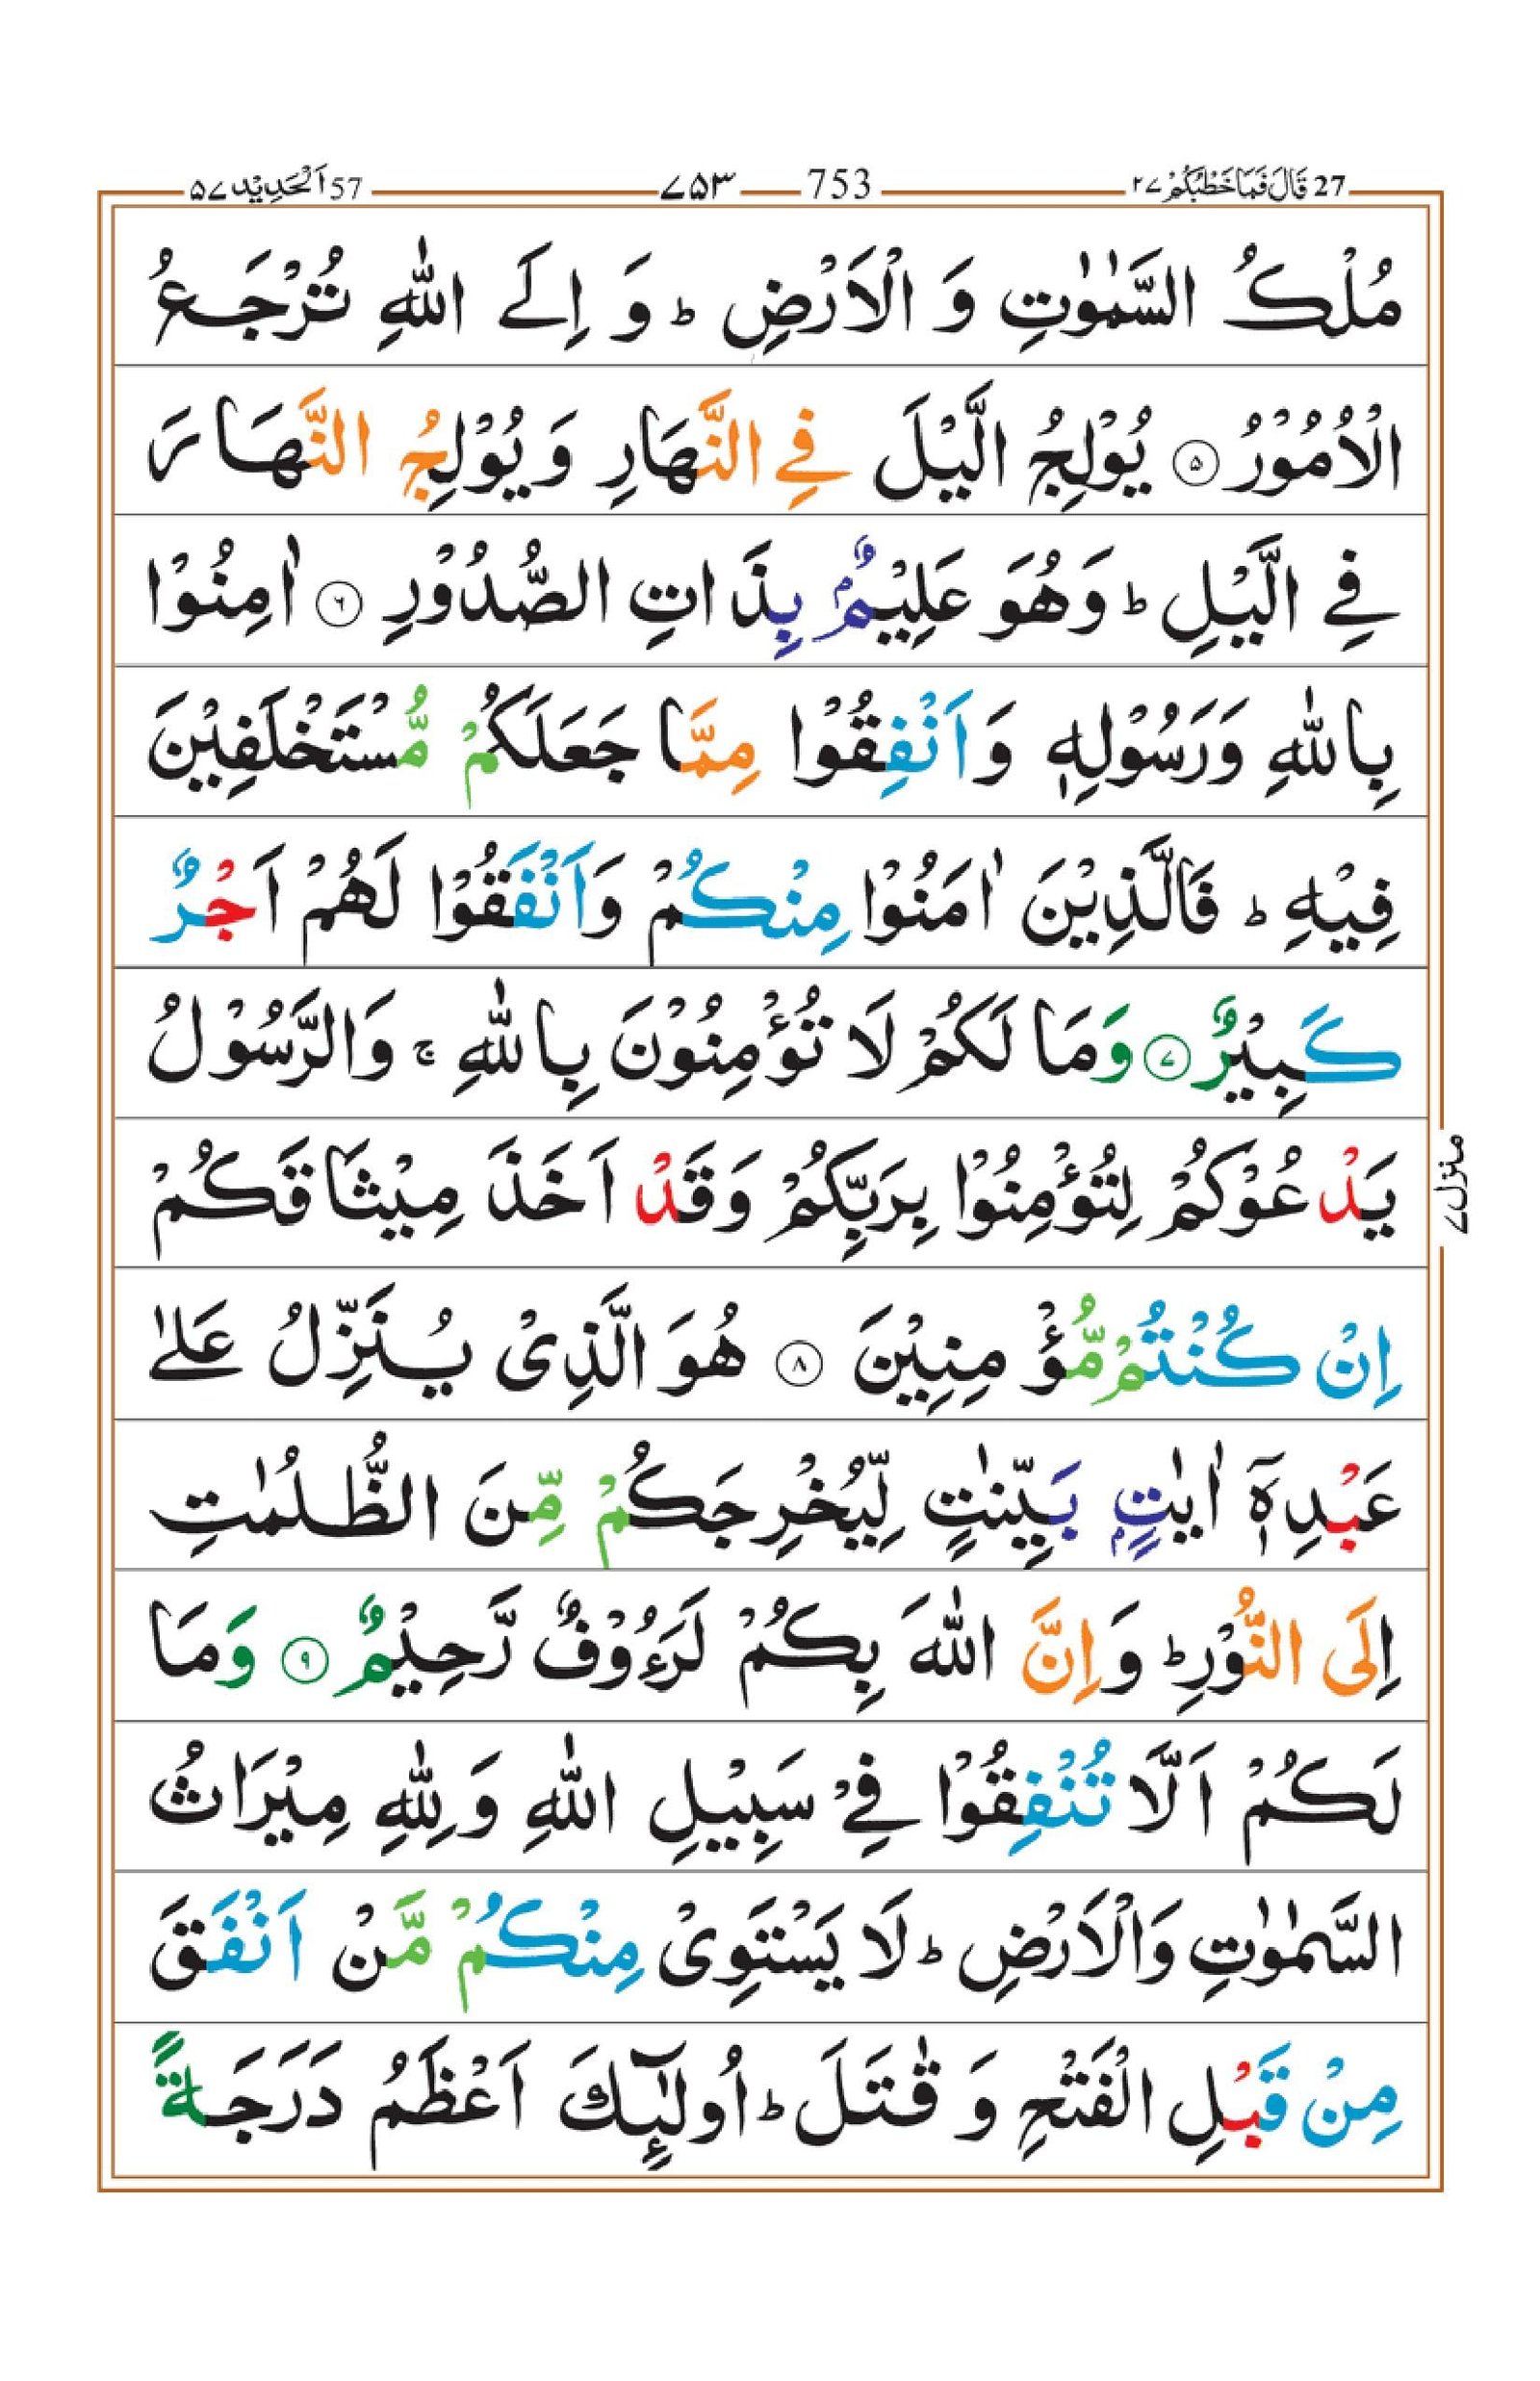 27 قَالَ فَمَا خَطْبُكُمْ ٢٧ 753 ٧٥٣ 57 اَلْحَدِيْد ٥٧
مُلْكُ السَّمٰوٰتِ وَ الْاَرْضِ ؕ وَ اِلَى اللّٰهِ تُرْجَعُ
الْاُمُوْرُ ۝٥ يُوْلِجُ الَّيْلَ فِي النَّهَارِ وَيُوْلِجُ النَّهَارَ
فِي الَّيْلِ ؕ وَهُوَ عَلِيْمٌۢ بِذَاتِ الصُّدُوْرِ ۝٦ اٰمِنُوْا
بِاللّٰهِ وَرَسُوْلِهٖ وَاَنْفِقُوْا مِمَّا جَعَلَكُمْ مُّسْتَخْلَفِيْنَ
فِيْهِ ؕ فَالَّذِيْنَ اٰمَنُوْا مِنْكُمْ وَاَنْفَقُوْا لَهُمْ اَجْرٌ
كَبِيْرٌ ۝٧ وَمَا لَكُمْ لَا تُؤْمِنُوْنَ بِاللّٰهِ ۚ وَالرَّسُوْلُ
يَدْعُوْكُمْ لِتُؤْمِنُوْا بِرَبِّكُمْ وَقَدْ اَخَذَ مِيْثَاقَكُمْ
اِنْ كُنْتُمْ مُّؤْمِنِيْنَ ۝٨ هُوَ الَّذِيْ يُنَزِّلُ عَلٰى
عَبْدِهٖٓ اٰيٰتٍۭ بَيِّنٰتٍ لِّيُخْرِجَكُمْ مِّنَ الظُّلُمٰتِ
اِلَى النُّوْرِ ؕ وَاِنَّ اللّٰهَ بِكُمْ لَرَءُوْفٌ رَّحِيْمٌ ۝٩ وَمَا
لَكُمْ اَلَّا تُنْفِقُوْا فِيْ سَبِيْلِ اللّٰهِ وَلِلّٰهِ مِيْرَاثُ
السَّمٰوٰتِ وَالْاَرْضِ ؕ لَا يَسْتَوِيْ مِنْكُمْ مَّنْ اَنْفَقَ
مِنْ قَبْلِ الْفَتْحِ وَ قٰتَلَ ؕ اُولٰٓئِكَ اَعْظَمُ دَرَجَةً
منزل ٧